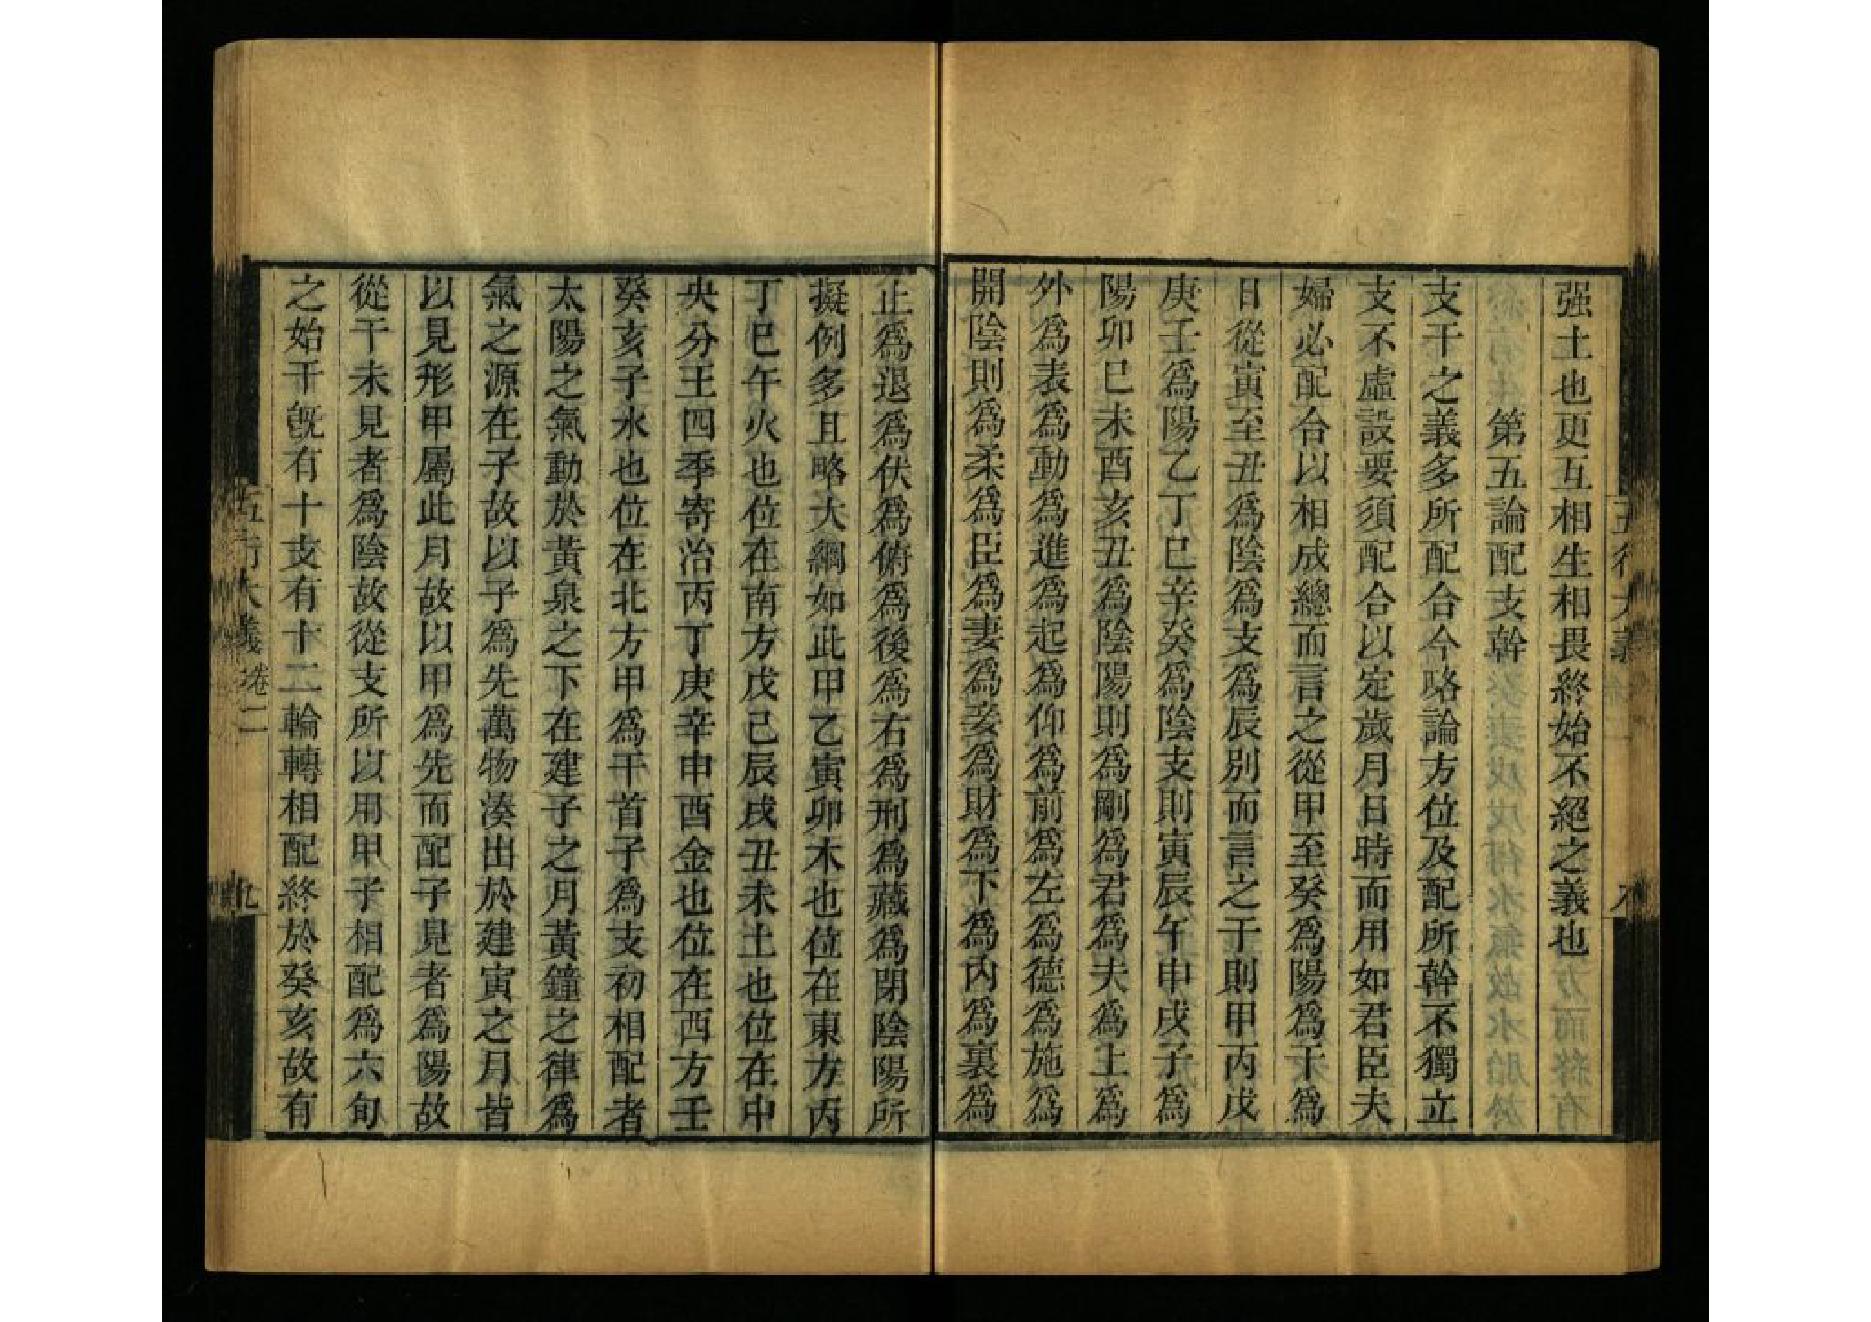 强土也更互相生相畏終始不絕之義也
第五論配支幹
支干之義多所配合今略論方位及配所幹不獨立
支不虛設要須配合以定歲月日時而用如君臣夫
婦必配合以相成總而言之從甲至癸爲陽爲干爲
日從寅至丑爲陰爲支爲辰別而言之干則甲丙戊
庚壬爲陽乙丁巳辛癸爲陰支則寅辰午申戌子爲
陽卯巳未酉亥丑爲陰陽則爲剛爲君爲夫爲上爲
外爲表爲動爲進爲起爲仰爲前爲左爲德爲施爲
開陰則爲柔爲臣爲妻爲妾爲財爲下爲內爲裏爲
止爲退爲伏爲俯爲後爲右爲刑爲藏爲閉陰陽所
擬例多且略大綱如此甲乙寅卯木也位在東方丙
丁巳午火也位在南方戊己辰戌丑未土也位在中
央分王四季寄治丙丁庚辛申酉金也位在西方壬
癸亥子水也位在北方甲爲干首子爲支初相配者
太陽之氣動於黃泉之下在建子之月黃鐘之律爲
氣之源在子故以子爲先萬物湊出於建寅之月皆
以見形甲屬此月故以甲爲先而配子見者爲陽故
從干未見者爲陰故從支所以用甲子相配爲六旬
之始干旣有十支有十二輪轉相配終於癸亥故有
五行大義 卷二 九